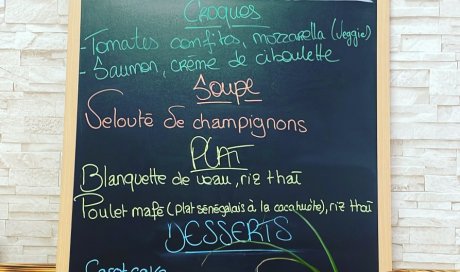 Croques
- Tomates confites, mozzarella (veggie)
- Saumon, crème de ciboulette
Soupe
Velouté de champignons
PLAT
Blanquette de veau, riz thaï
Poulet mafé (plat sénégalais à la cacahuète), riz thaï
DESSERTS
Carot cake